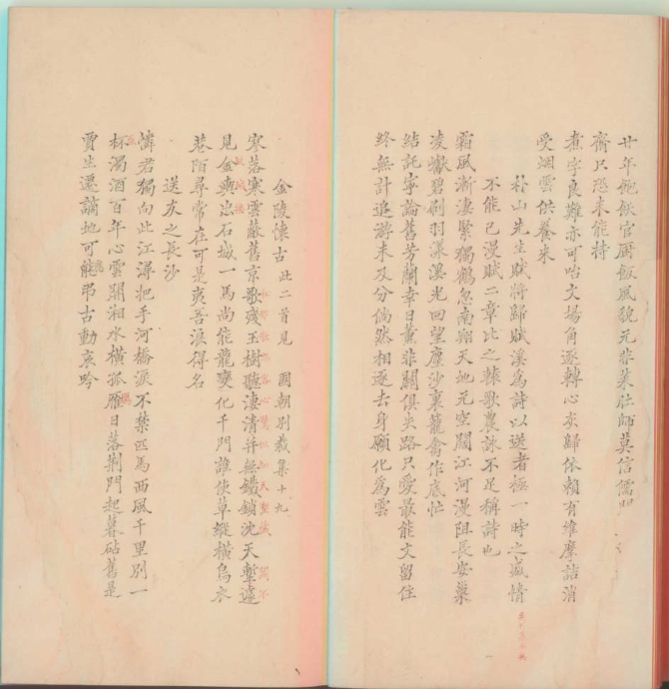 廿年飽飫官厨飯風貌元非菜肚師莫信儒
齋只恐未能持
煮字良難亦可咍文場角逐轉心灰歸依賴有維摩詰消
受烟雲供養來
朴山先生賦將歸賦溪為詩以送者極一時之盛情
不能已漫賦二章比之棘歌農詠不足稱詩也
霜風漸淒緊獨鶴忽南翔天地元空闊江河漫阻長安巢
凌巘碧刷羽漾溪光回望塵沙裏籠禽作底忙
結託寧論舊芳蘭幸日薰非關俱失路只愛最能文留住
終無計追游未及分倘然相逐去身願化為雲
金陵懷古 此二首見 國朝別裁集十九
寥落寒雲蔽舊京歌殘玉樹聽淒清并無鐵鎖沈天塹遽
見金輿出石城一馬尚能龍變化千門誰使草縱橫烏衣
巷陌尋常在可是夷吾浪得名
送友之長沙
憐君獨向此江潯把手河橋淚不禁匹馬西風千里別一
杯濁酒百年心雲開湘水橫孤雁日落荆門起暮砧舊是
賈生遷謫地可能弔古動哀吟